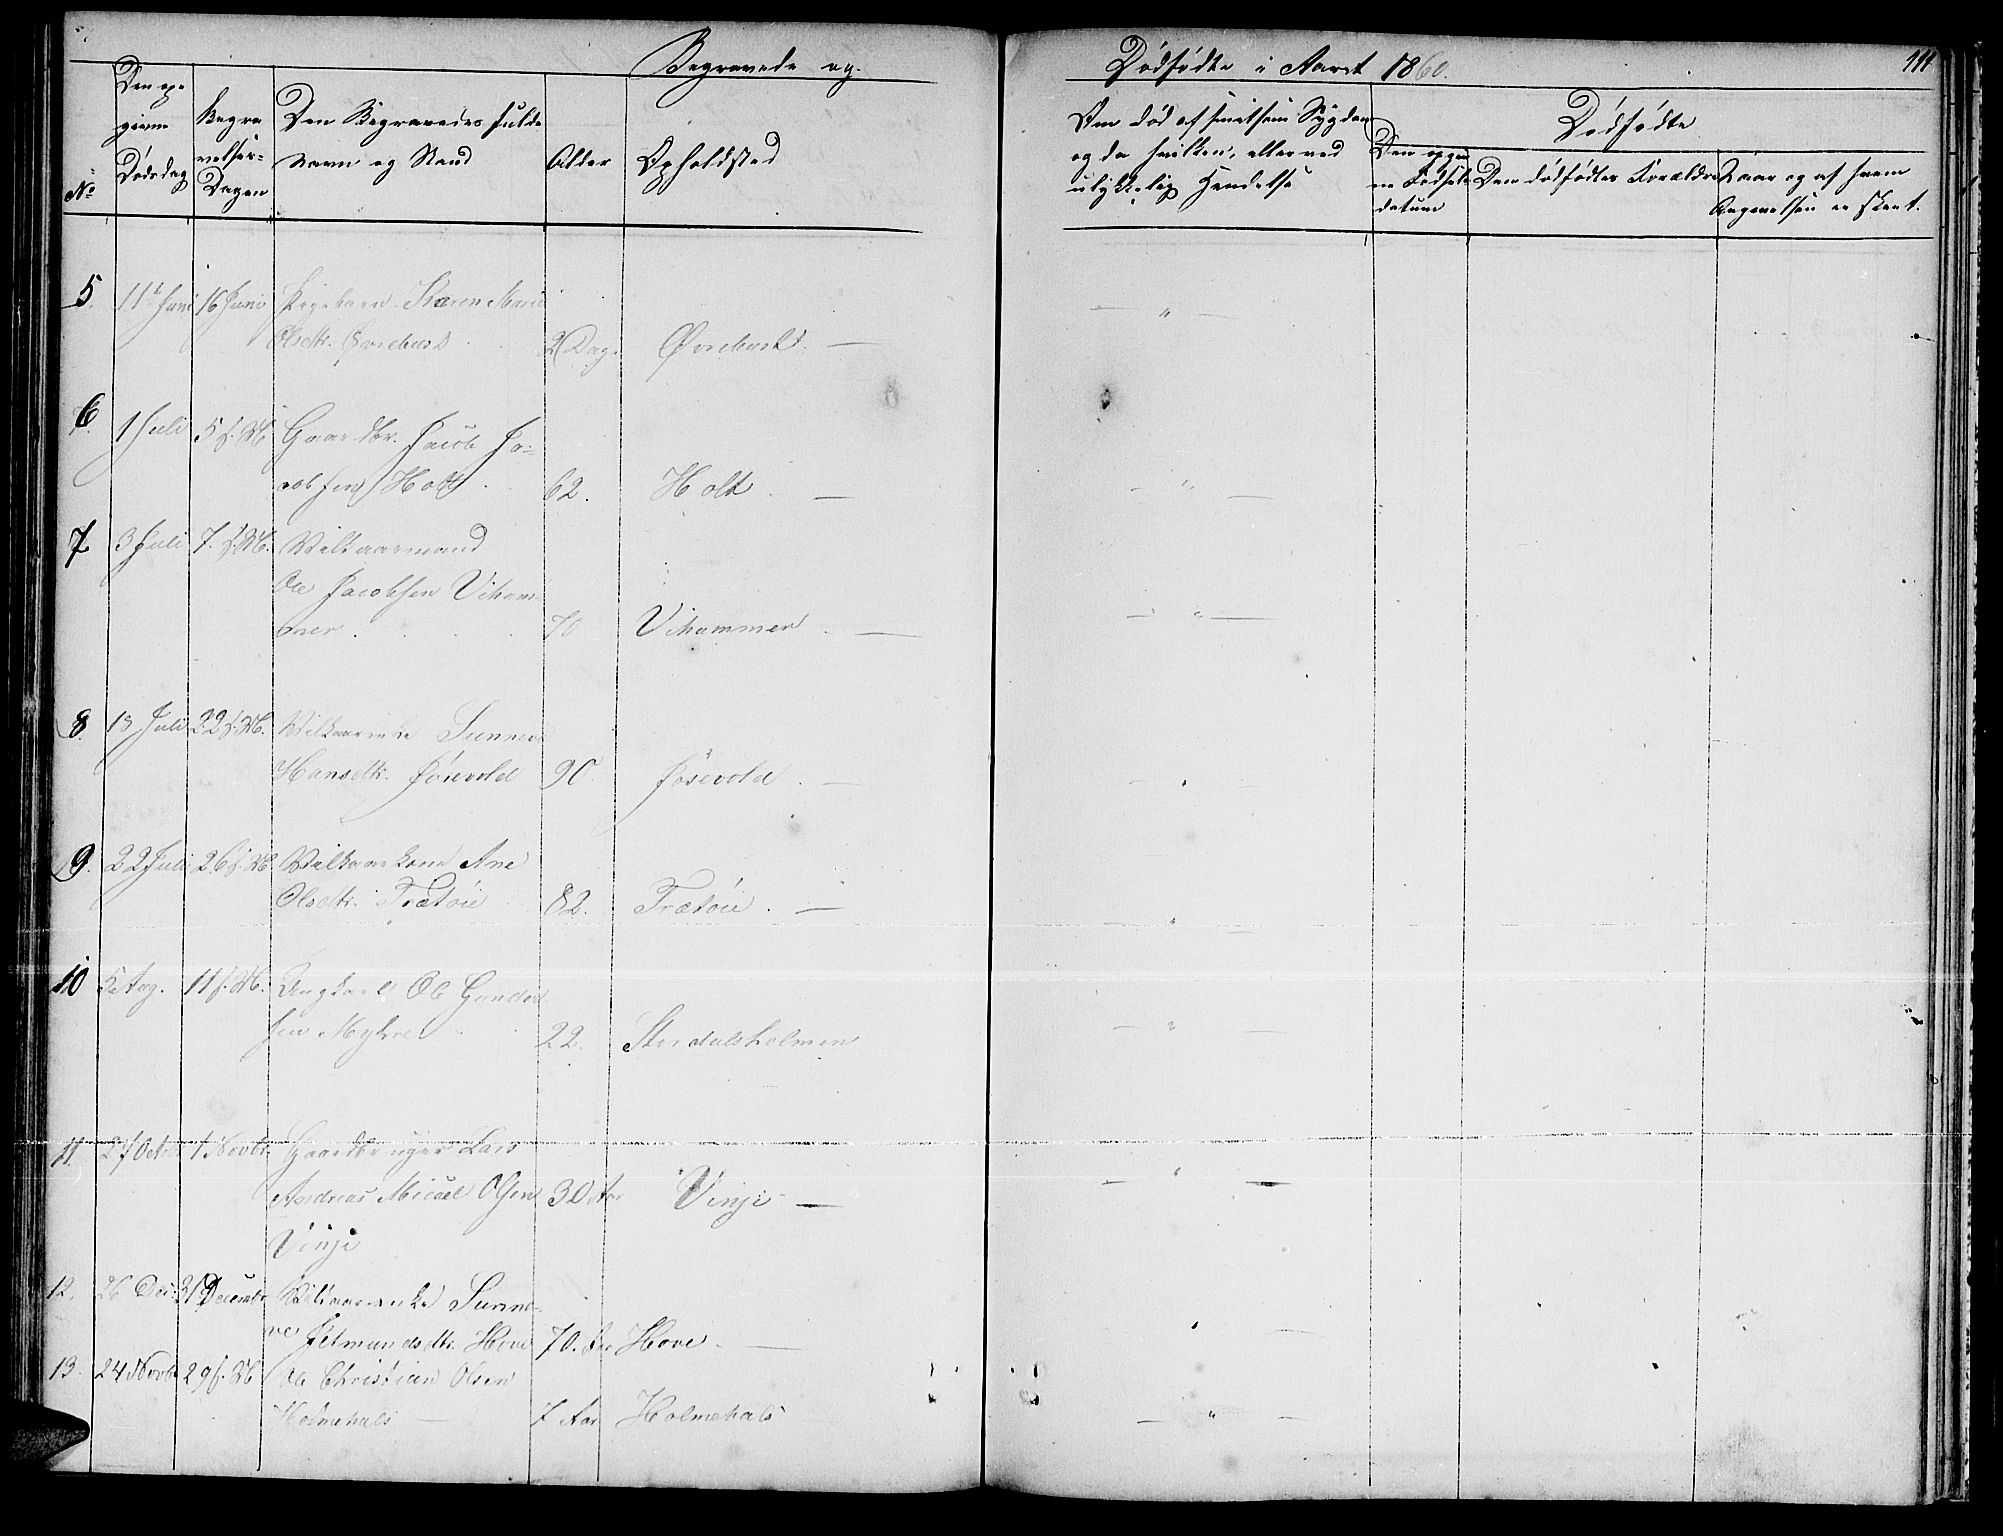 Begravede og
Dødfødte i Aaret 1860.
111
No
Den op-
givne
Dødsdag
Begra
velses-
Dagen
Den Begravedes fulde
Navn og Stand
Alder
Opholdsted
Om død af smitsom Sygdom
og da hvilken, eller ved
ulykkelig Hendelse
Den opgiv
ne Fødsels
datum
Dødfødte
Den dødfødtes Forældre
Naar og af hvem
Angivelsen er skeet.
5. 11te Juni 16 Juni Pigebarn Karen Marie
Olsdtr. Øvrebust 2 Dag. Øvrebust. —
6. 1 Juli 5 f. M. Gaardbr. Jacob Ja-
cobsen Holt 62. Holt. —
7 3 Juli 7. f. M. Vilkaarmand
Ole Jacobsen Viham-
mer. 70 Vihammer. —
8. 13 Juli 22 f. M. Vilkaarenke Sunneve
Hansdtr. Jøsevold 90. Jøsevold. —
9. 22 Juli 26 f. M. Vilkaarkone Ane
Olsdtr. Trætøie 82. Trætøie. —
10 5 Aug. 11 f. M. Ungkarl Ole Gunder
sen Myhre 22. Stordalsholmen
11. 27 Octbr 1 Novbr. Gaardbruger Lars
Andreas Micael Olsen 30 Aar Vinje —
Vinje
12. 26 Dec. 31 Decembr Vilkaarenke Sunne-
ve Jetmundsdtr. Hove 70. Aar Hove. —
13. 24 Novbr 29 f. M. Ole Christian Olsen
Holmehals — 7 Aar Holmehals